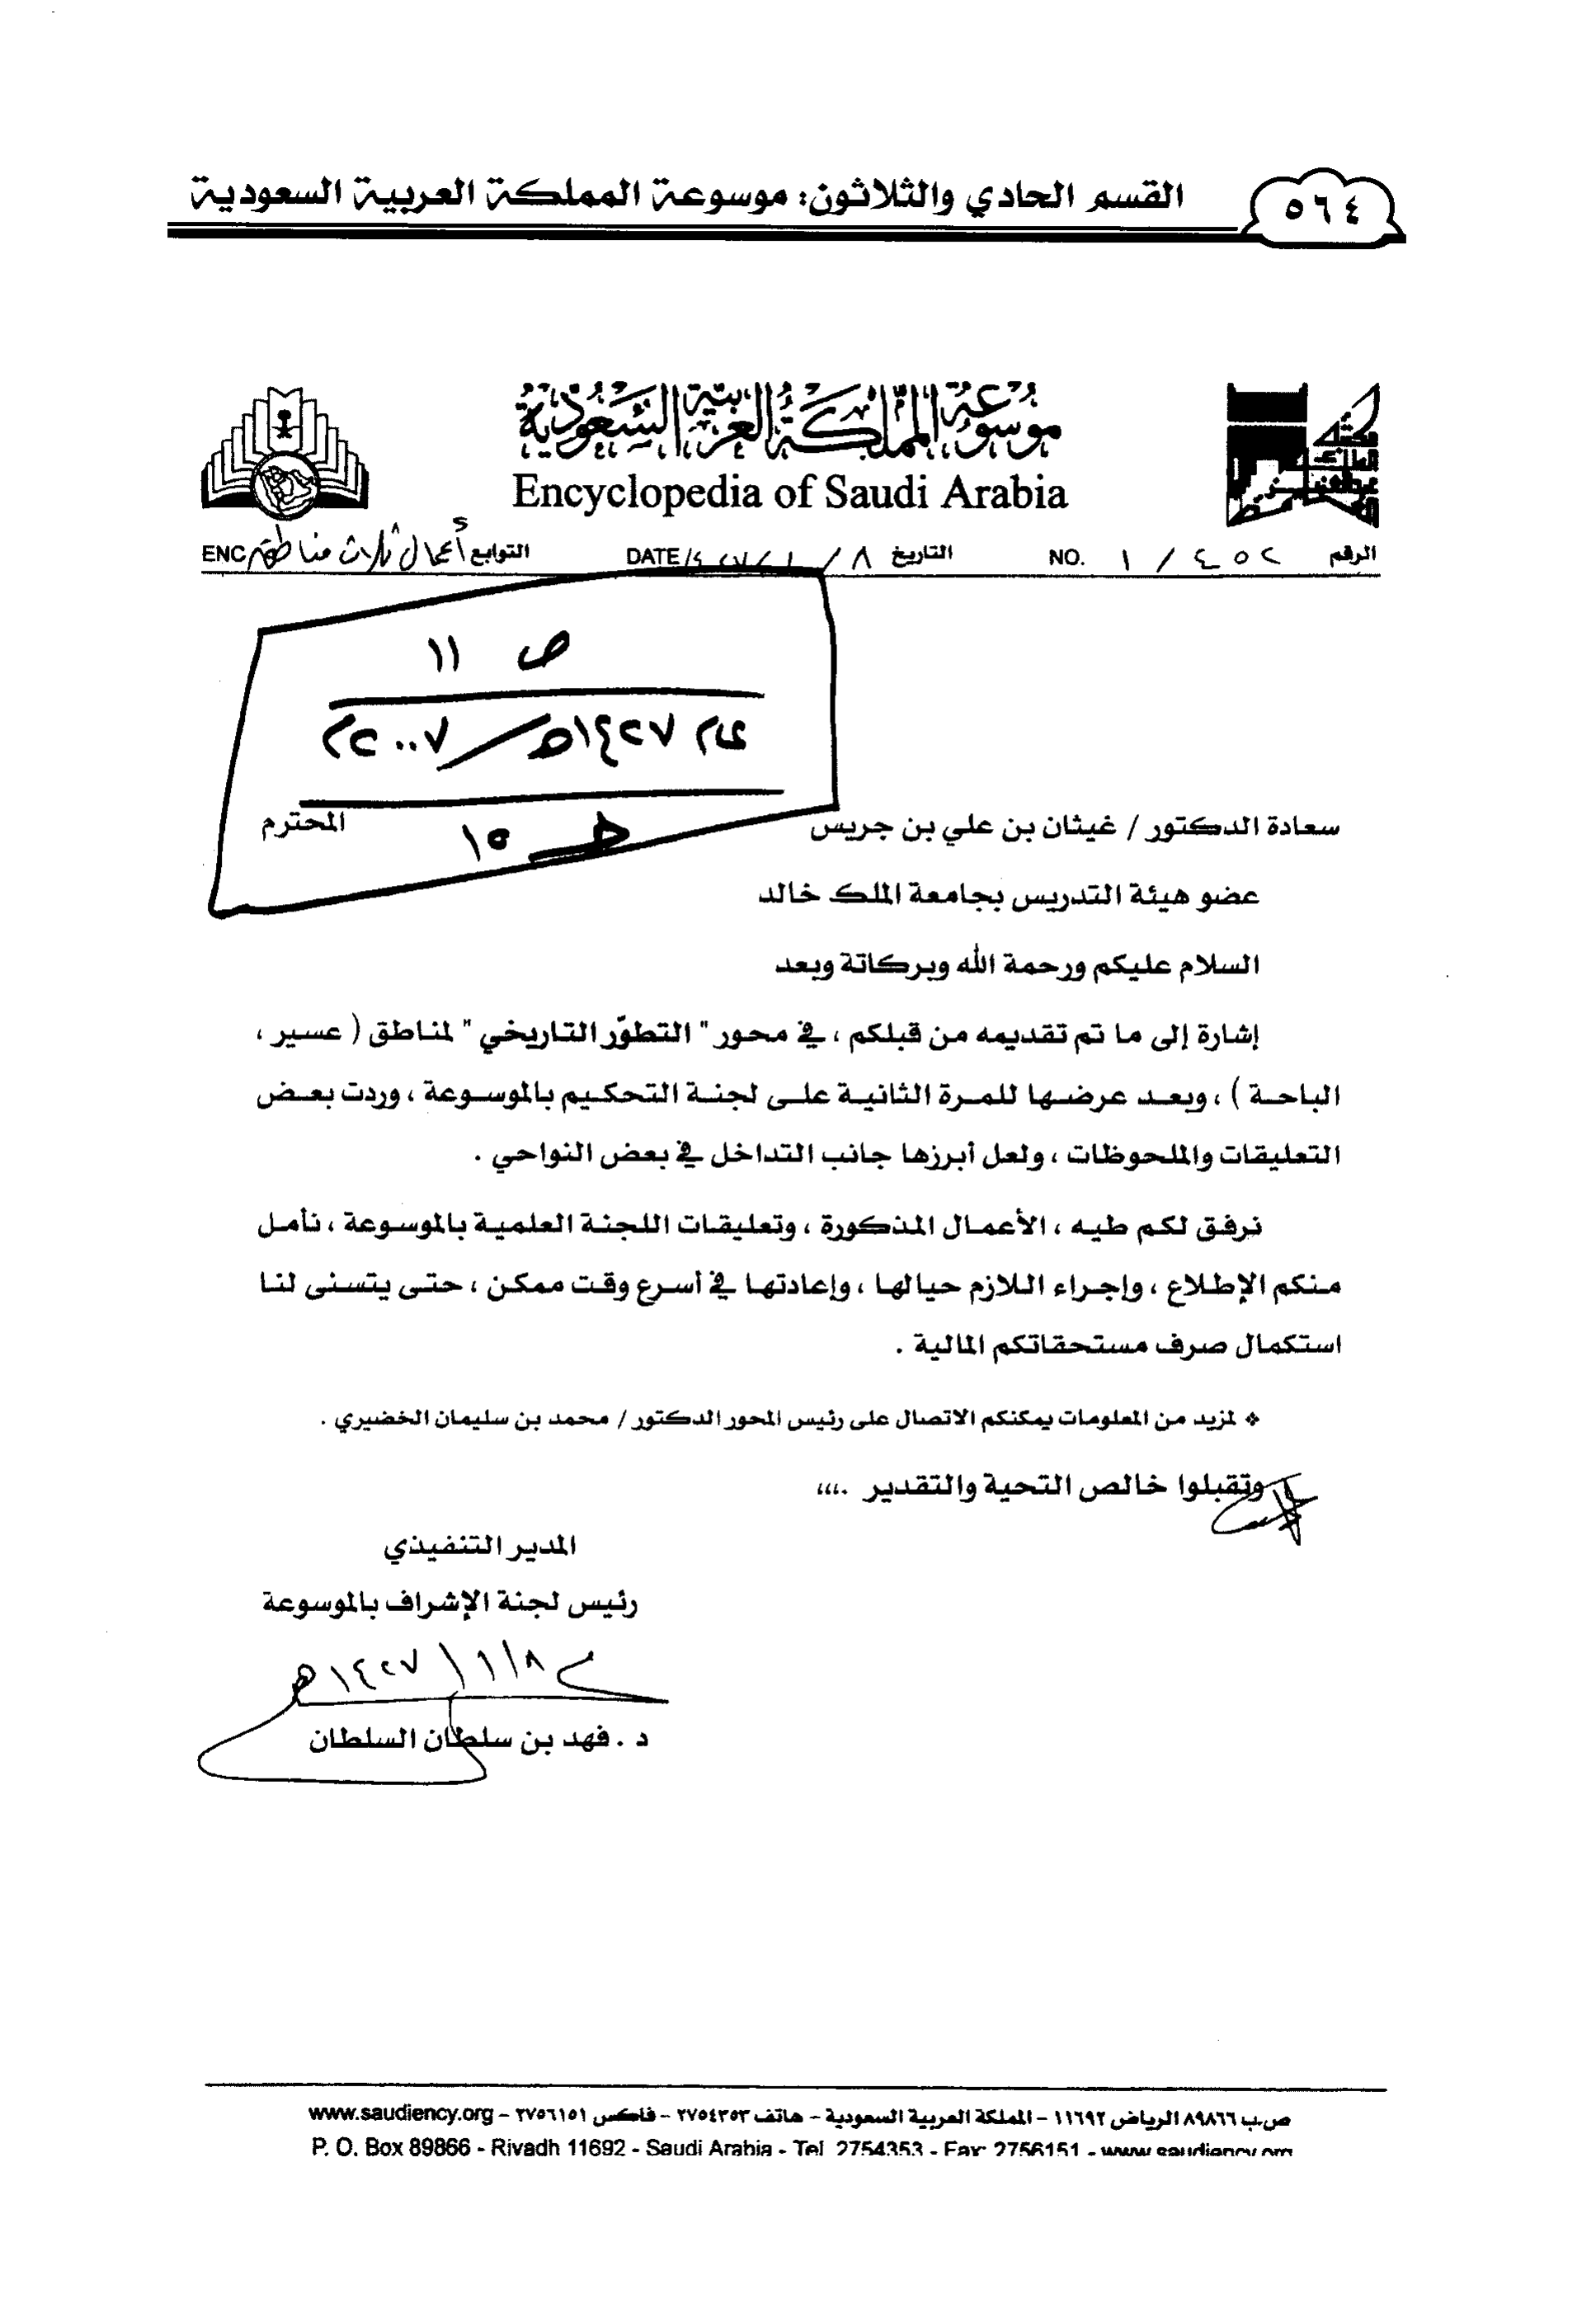 القسم الحادي والثلاثون: موسوعة المملكة العربية السعودية
٥٦٤
موسوعة المملكة العربية السعودية
Encyclopedia of Saudi Arabia
الرقم ١ / ٤٥٢ NO.
التاريخ ٨ / ١ / DATE
التوابع أعمال ثلاث مناطق ENC
ص ١١
عام ١٤٢٧هـ/٢٠٠٧م
هـ ١٥
سعادة الدكتور / غيثان بن علي بن جريس المحترم
عضو هيئة التدريس بجامعة الملك خالد
السلام عليكم ورحمة الله وبركاتة وبعد
إشارة إلى ما تم تقديمه من قبلكم ، في محور " التطوّر التاريخي " لمناطق ( عسير ،
الباحة ) ، وبعد عرضها للمرة الثانية على لجنة التحكيم بالموسوعة ، وردت بعض
التعليقات والملحوظات ، ولعل أبرزها جانب التداخل في بعض النواحي .
نرفق لكم طيه ، الأعمال المذكورة ، وتعليقات اللجنة العلمية بالموسوعة ، نأمل
منكم الإطلاع ، وإجراء اللازم حيالها ، وإعادتها في أسرع وقت ممكن ، حتى يتسنى لنا
استكمال صرف مستحقاتكم المالية .
❖ لمزيد من المعلومات يمكنكم الاتصال على رئيس المحور الدكتور / محمد بن سليمان الخضيري .
وتقبلوا خالص التحية والتقدير ....
المدير التنفيذي
رئيس لجنة الإشراف بالموسوعة
٨/١/١٤٢٧هـ
د . فهد بن سلطان السلطان
ص.ب ٨٩٨٦٦ الرياض ١١٦٩٢ – المملكة العربية السعودية – هاتف ٢٧٥٤٣٥٣ – فاكس ٢٧٥٦١٥١ – www.saudiency.org
P. O. Box 89866 - Riyadh 11692 - Saudi Arabia - Tel 2754353 - Fax: 2756151 - www.saudiency.org